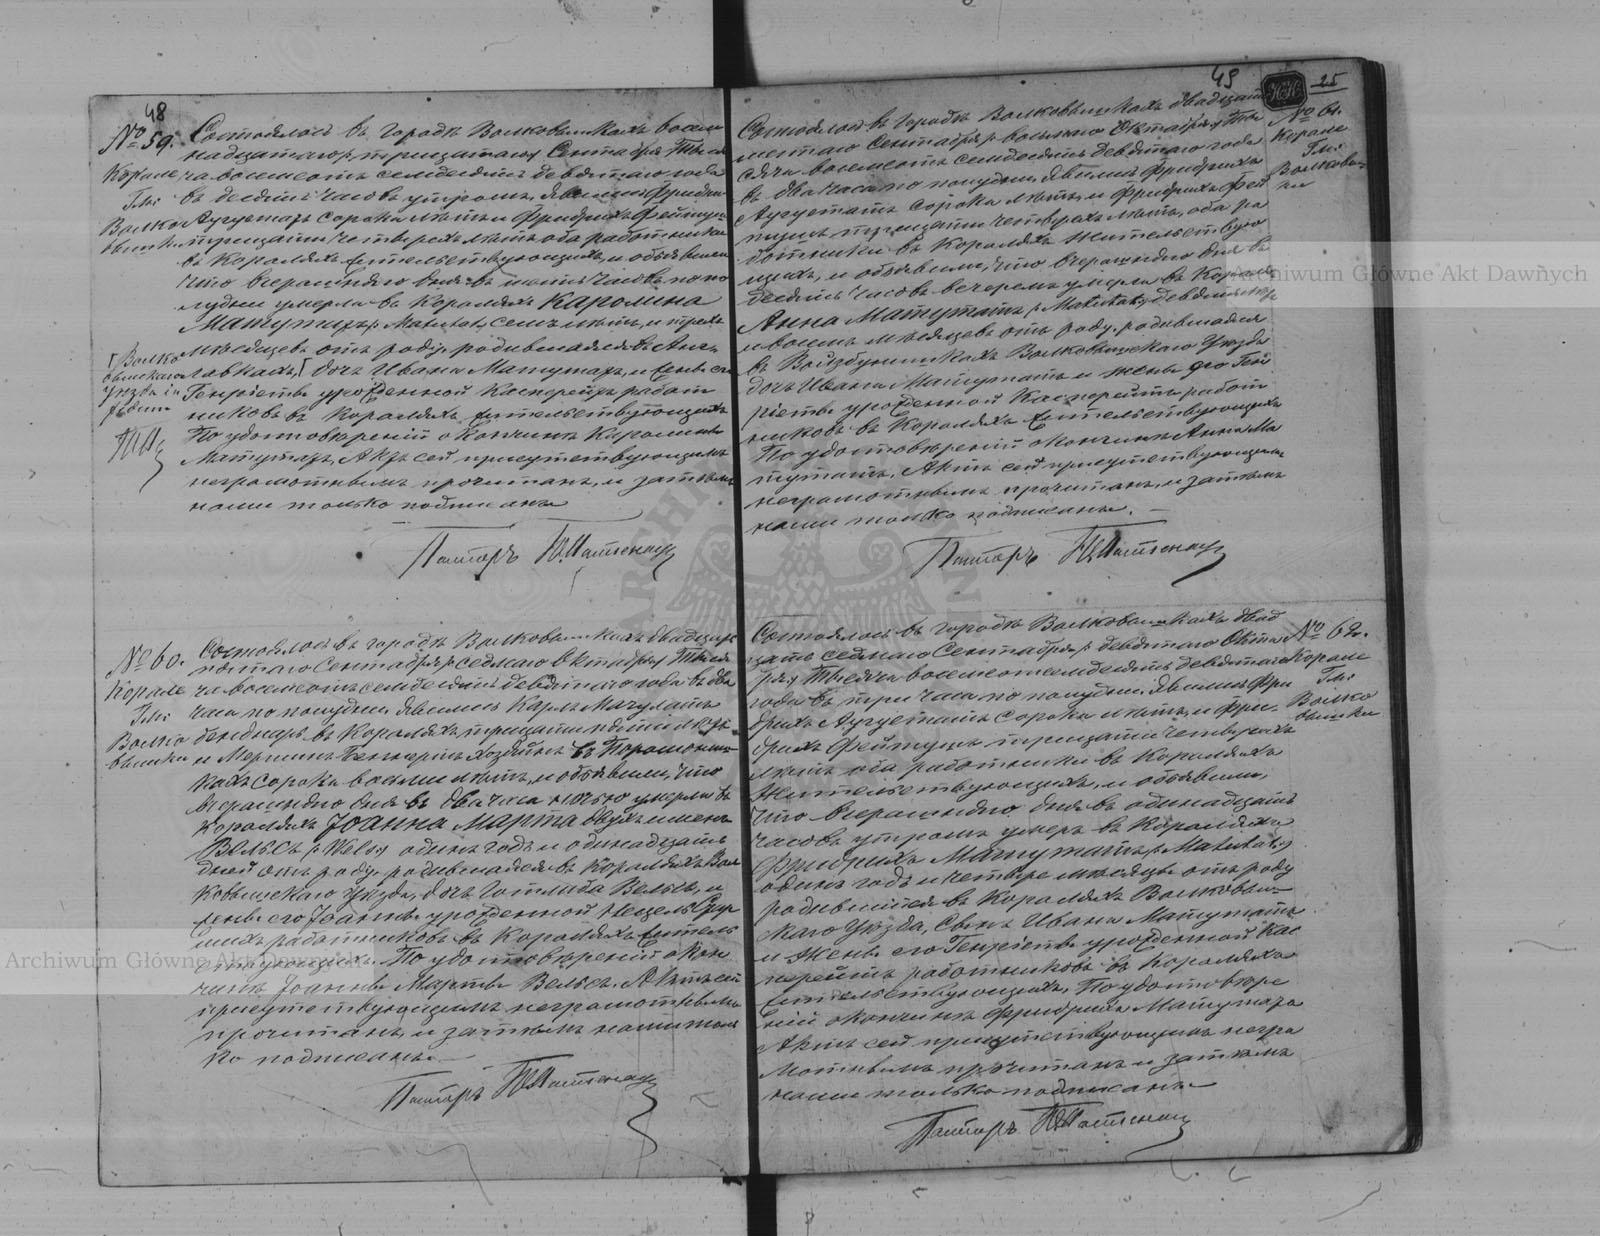 48
№ 59.
Короле
Гм:
Волко
вышки
Состоялось въ городѣ Волковышкахъ восем
надцатаго /: тридцатаго :/ Сентября Тыся
ча восемсотъ семдесятъ девятаго года
въ десять часовъ утромъ. Явились Фридрихъ
Аугустатъ сорока лѣтъ и Фридрихъ Фейтушъ
тридцати четырехъ лѣтъ оба работники
въ Короляхъ жительствующіе, и объявили
что вчерашняго дня въ пять часовъ по по
лудни умерла въ Короляхъ Каролина
Матутатъ /: Matutat :/ семь лѣтъ, и трехъ
мѣсяцевъ отъ роду, родившаяся въ
дочь Ивана Матутатъ, и жены его
Генріеты урожденной Касперейтъ работ
никовъ въ Короляхъ жительствующихъ
По удостовѣреніи о кончинѣ Каролины
Матутатъ, Актъ сей присутствующимъ
неграмотнымъ прочитанъ, и затѣмъ
нами только подписанъ
Пасторъ
№ 60.
Короле
Гм:
Волко
вышки
Состоялось въ городѣ Волковышкахъ двадцать
пятаго Сентября /: седмаго Октября :/ Тыся
ча восемсотъ семдесятъ девятаго года въ два
часа по полудни. Явились Карлъ Матулатъ
въ Короляхъ, тридцати пяти лѣтъ
и хозяинъ въ
кахъ сорока восьми лѣтъ, и объявили, что
вчерашняго дня въ два часа ночью умерла въ
Короляхъ Іоанна Марта двухъ именъ
Вельсъ /: Wels :/ одинъ годъ и одинадцать
дней отъ роду, родившаяся въ Короляхъ Вол
ковышскаго Уѣзда, дочь Готлиба Вельсъ, и
жены его Іоанны урожденной
работниковъ въ Короляхъ житель
ствующихъ. По удостовѣреніи о кон
чинѣ Іоанны Марты Вельсъ, Актъ сей
присутствующимъ неграмотнымъ
прочитанъ, и затѣмъ нами толь
ко подписанъ.
Пасторъ
49
25
№ 61.
Короле
Гм:
Волковыш
ки
Состоялось въ городѣ Волковышкахъ двадцать
шестаго Сентября /: восьмаго Октября :/ Ты
сяча восемсотъ семдесятъ девятаго года
въ два часа по полудни. Явились Фридрихъ
Аугустатъ сорока лѣтъ, и Фридрихъ Фей
тушъ тридцати четырехъ лѣтъ, оба ра
ботники въ Короляхъ жительствую
щіе, и объявили, что вчерашняго дня въ
десять часовъ вечеромъ умерла въ Короляхъ
Анна Матутатъ /: Matutat :/
и восемь мѣсяцевъ отъ роду, родившаяся
въ Войздбунишкахъ Волковышскаго Уѣзда
дочь Ивана Матутатъ и жены его Ген
ріеты урожденной Касперейтъ работ
никовъ въ Короляхъ жительствующихъ
По удостовѣреніи о кончинѣ Анны Ма
тутатъ, Актъ сей присутствующимъ
неграмотнымъ прочитанъ, и затѣмъ
нами только подписанъ.
Пасторъ
№ 62.
Короле
Гм:
Волко
вышки
Состоялось въ городѣ Волковышкахъ двад
цать седмаго Сентября /: девятаго Октя
бря :/ Тысяча восемсотъ семдесятъ девятаго
года въ три часа по полудни. Явились Фри
дрихъ Аугустатъ сорока лѣтъ, и Фри
дрихъ Фейтушъ тридцати четырехъ
лѣтъ оба работники въ Короляхъ
жительствующіе, и объявили,
что вчерашняго дня въ одинадцать
часовъ утромъ умеръ въ Короляхъ
Фридрихъ Матутатъ /: Matutat :/
одинъ годъ и четыре мѣсяца отъ роду
родившійся въ Короляхъ Волковыш
скаго Уѣзда, Сынъ Ивана Матутатъ
и Жены его Генріеты урожденной Кас
перейтъ работниковъ въ Короляхъ
жительствующихъ, По удостовѣре
ніи о кончинѣ Фридриха Матутата
Актъ сей присутствующимъ негра
мотнымъ прочитанъ и затѣмъ
нами только подписанъ
Пасторъ
Archiwum Główne Akt Dawnych
Archiwum Główne Akt Dawnych